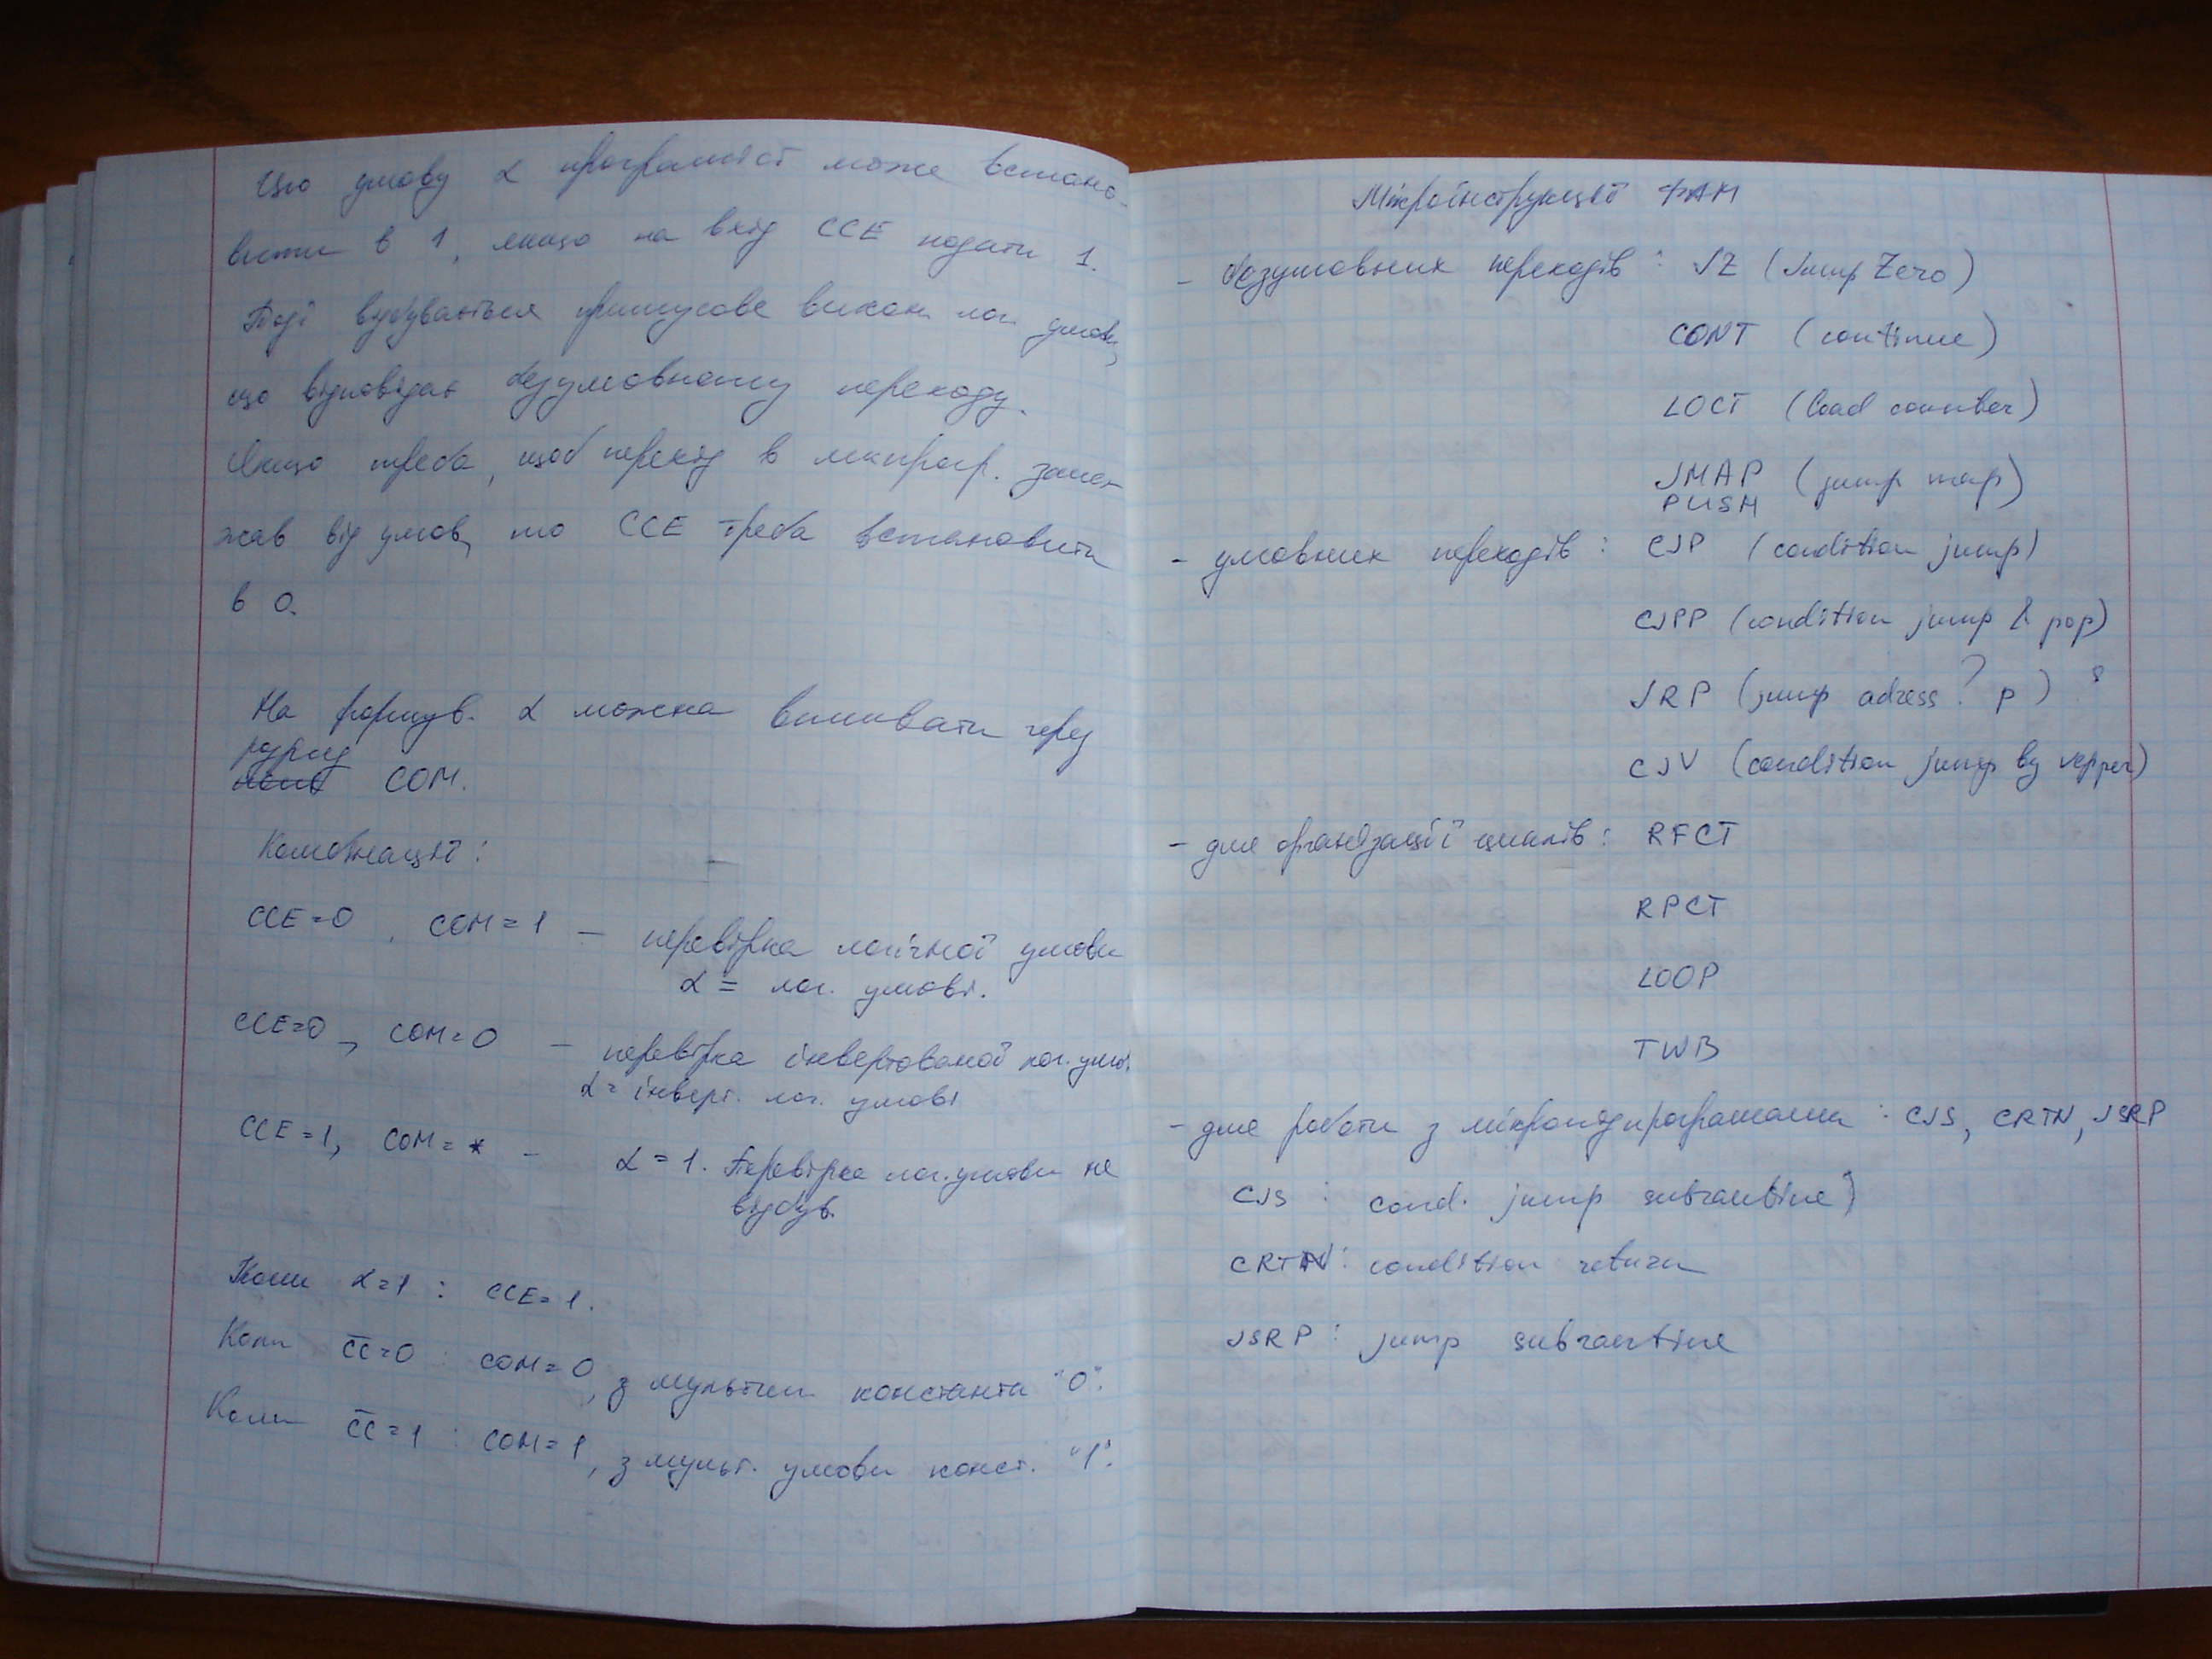 Цю умову α програміст може встано-
вити в 1, якщо на вхід CCE подати 1.
Тоді відбувається примусове викон. лог. умови,
що відповідає безумовному переходу.
Якщо треба, щоб перехід в мікпрогр. залеж
жав від умов, то CCE треба встановити
в 0.
На формув. α можна впливати через
розряд
COM.
Комбінації:
CCE=0, COM=1 — перевірка логічної умови
α = лог. умові.
CCE=0, COM=0 — перевірка інвертованої лог. умов.
α = інверт. лог. умові
CCE=1, COM=* — α=1. Перевірка лог. умови не
відбув.
Коли α=1 : CCE=1.
Коли C̅C̅=0 : COM=0, з мультип. константи "0".
Коли C̅C̅=1 : COM=1, з мульт. умови конст. "1".
Мікроінструкції ФАМ
- безумовних переходів : JZ (Jump Zero)
CONT (continue)
LOCT (load counter)
JMAP (jump map)
PUSH
- умовних переходів : CJP (condition jump)
CJPP (condition jump & pop)
JRP (jump adress ? p) ?
CJV (condition jump by)
- для організації циклів : RFCT
RPCT
LOOP
TWB
- для роботи з мікропідпрограмами : CJS, CRTN, JSRP
CJS : cond. jump subroutine)
CRTN : condition return
JSRP : jump subroutine